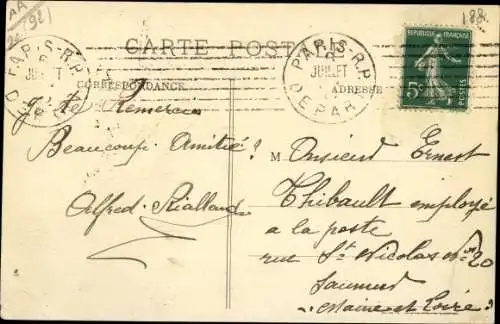 AA
1921
188
CARTE POSTALE
PARIS-R.P.
JUILLET
DEPART
PARIS-R.P.
JUILLET
DEPART
REPUBLIQUE FRANÇAISE
5c
POSTES
CORRESPONDANCE
ADRESSE
Je te Remercie
Beaucoup. Amitié
Alfred Rialland
Monsieur Ernest
Thibault employé
a la poste
rue St Nicolas No 20
Saumur
Maine et Loire